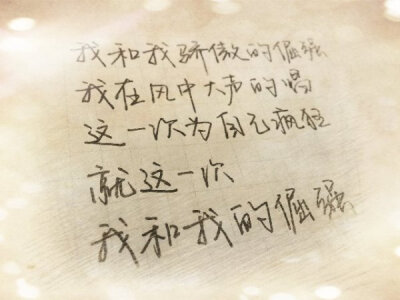 我和我骄傲的倔强
我在风中大声的唱
这一次为自己疯狂
就这一次
我和我的倔强